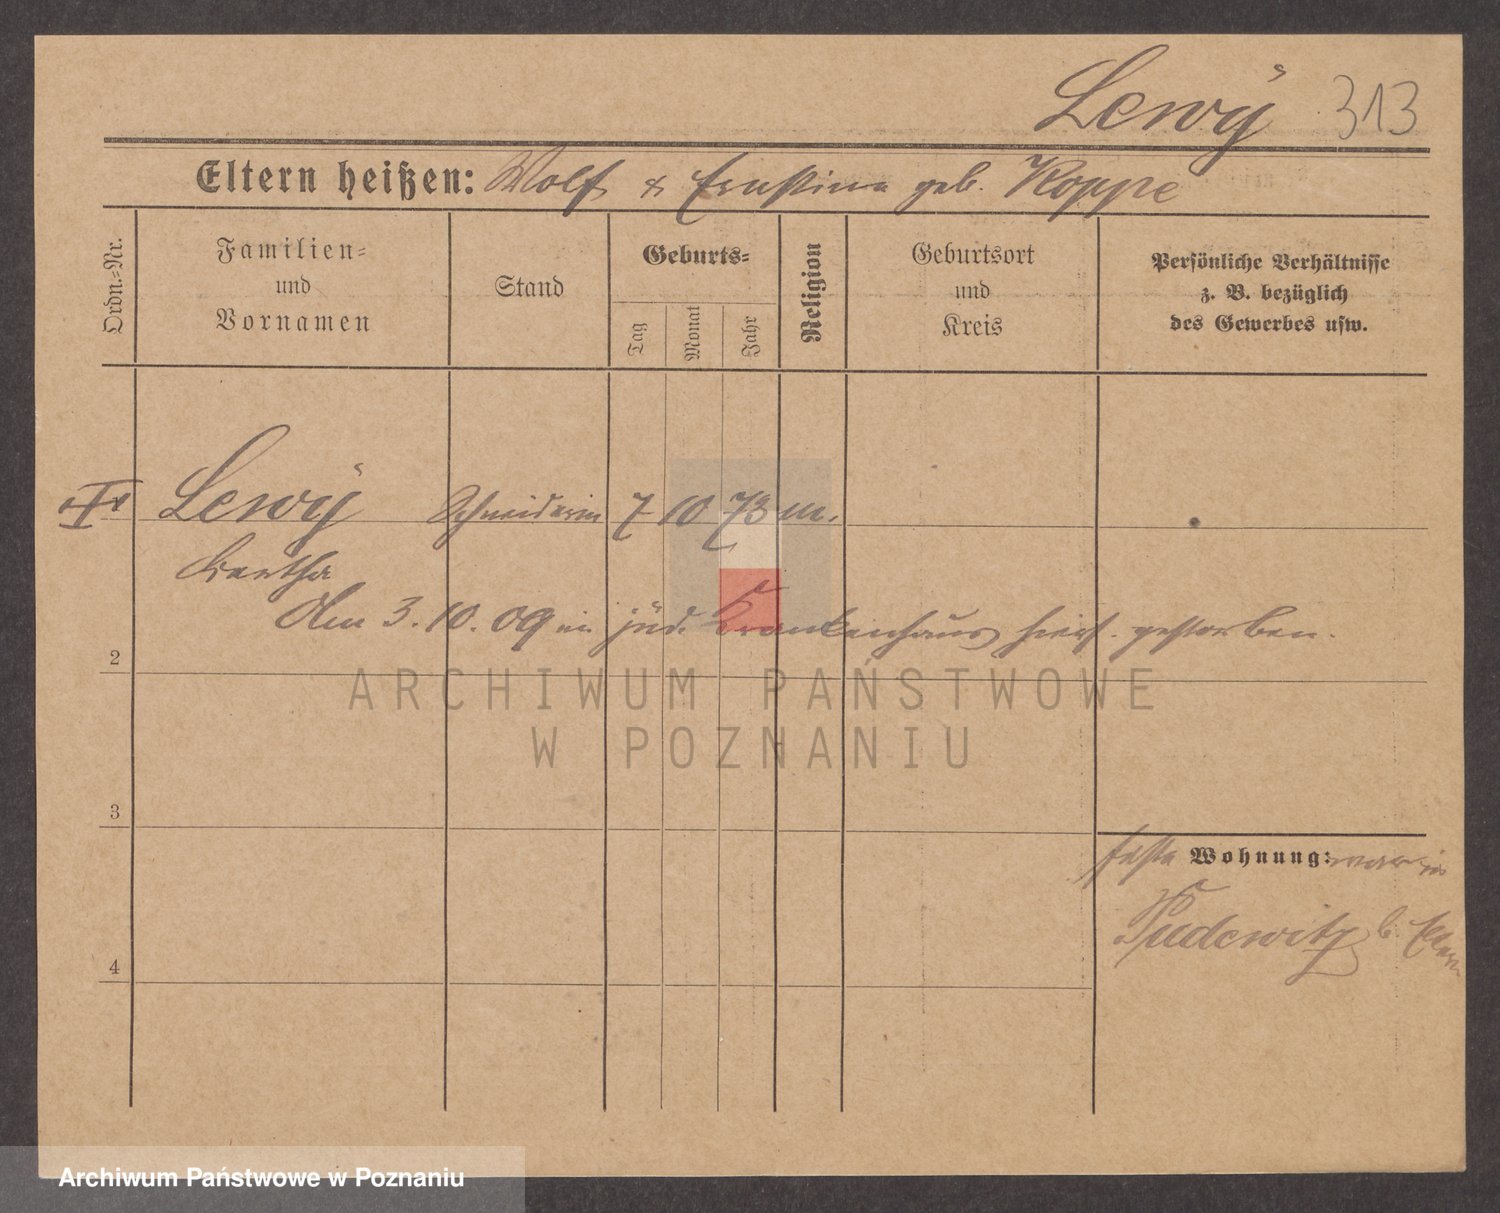 Lewÿ 313
Eltern heißen: Wolf & Ernstine geb. Koppe
Ordn.-Nr.
Familien-
und
Vornamen
Stand
Geburts-
Tag
Monat
Jahr
Religion
Geburtsort
und
Kreis
Persönliche Verhältnisse
z. B. bezüglich
des Gewerbes usw.
Lewÿ Schneiderin 7 10 73 m.
Bertha
Am 3. 10. 09 im jüd. Krankenhaus hiers. gestorben.
2
ARCHIWUM PAŃSTWOWE
W POZNANIU
3
feste Wohnung: war in
Pudewitz b. Eltern
4
Archiwum Państwowe w Poznaniu